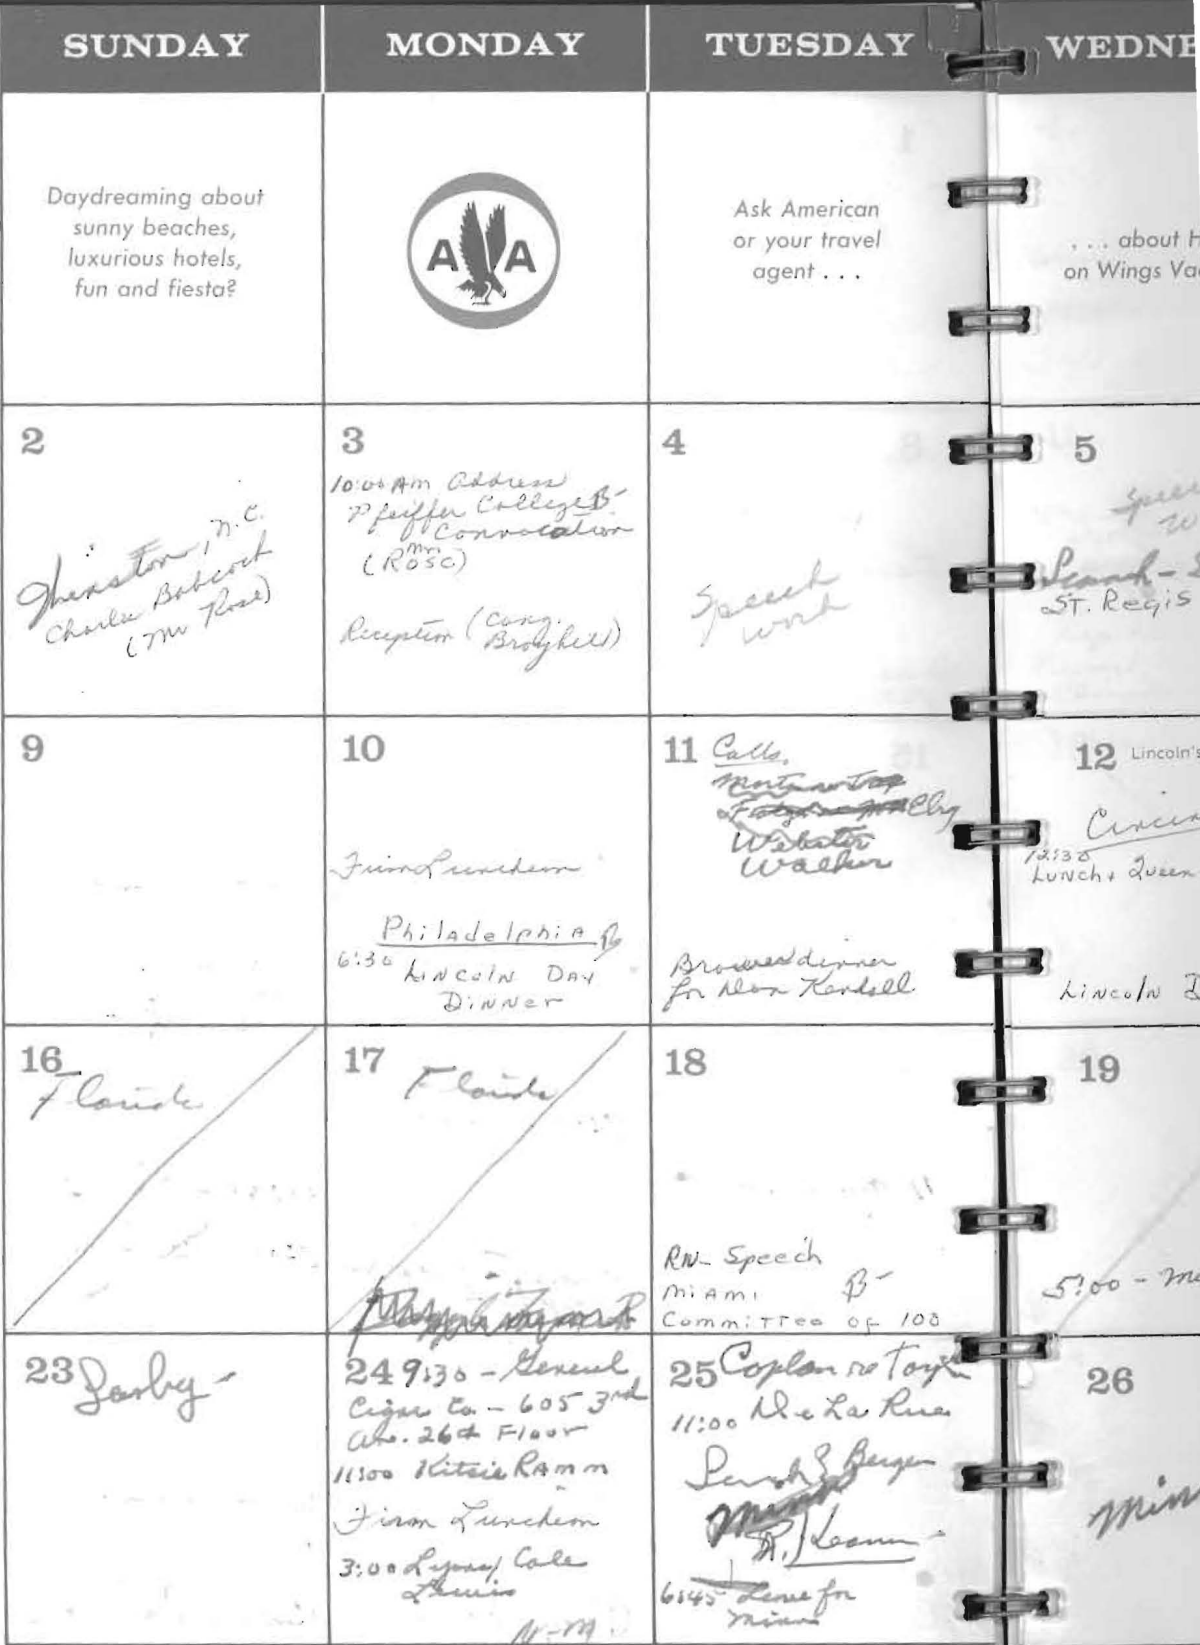 SUNDAY
MONDAY
TUESDAY
WEDNE
Daydreaming about
sunny beaches,
luxurious hotels,
fun and fiesta?
A A
Ask American
or your travel
agent . . .
. . . about H
on Wings Va
2
Winston, N.C.
Charlie Babcock
(Mr Rose)
3
10:00 AM Address
Pfeiffer College B-
Convocation
(Mr Rose)
Reception (Cong.
Broyhill)
4
Speech
work
5
Lunch -
ST. Regis
9
10
Firm Luncheon
Philadelphia B
6:30
LINCOLN DAY
DINNER
11
Calls
Webster
Walker
dinner
for Don Kendall
12
Lincoln's
12:30
Lunch + Queen
LINCOLN D
16
Florida
17
Florida
18
RN- Speech
MIAMI B-
Committee of 100
19
5:00 - Me
23
24
9:30 - General
Cigar Co. - 605 3rd
Ave. 26th Floor
11:00 Kitsie RAMM
Firm Luncheon
3:00
Lewis
25
11:00 De La Rue
Lunch
6:45 Leave for
Minn
26
Min